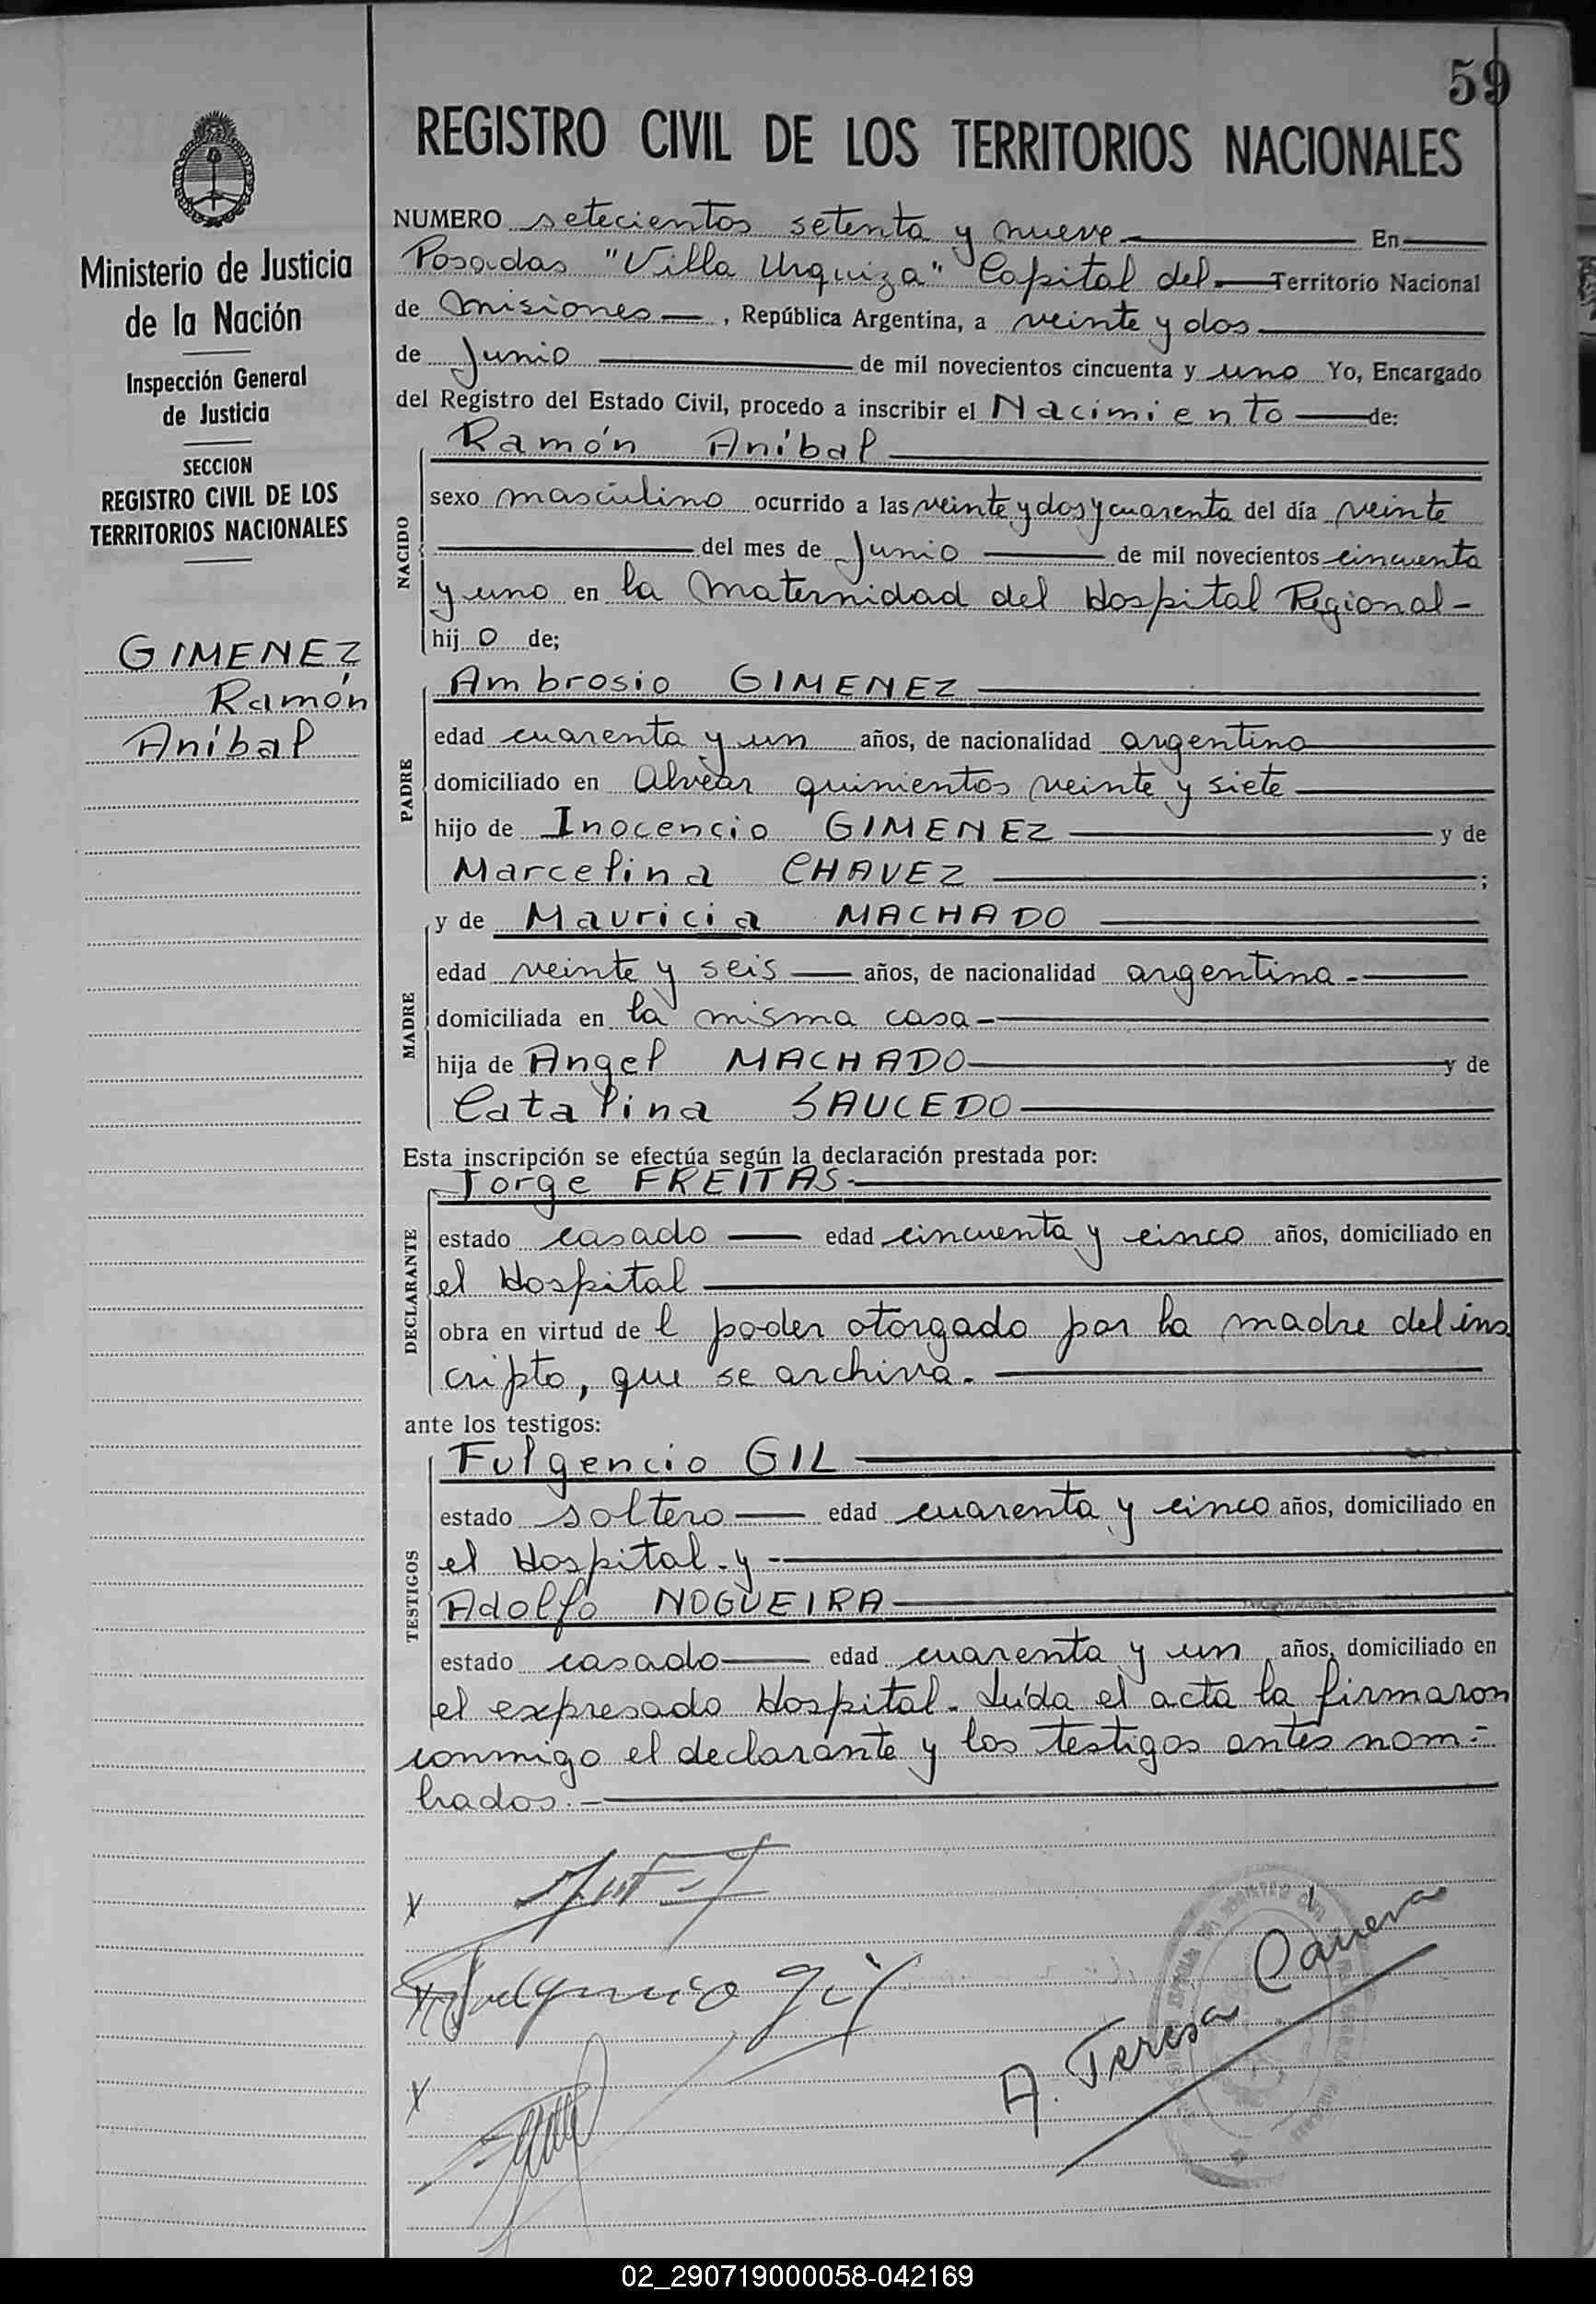 59
REGISTRO CIVIL DE LOS TERRITORIOS NACIONALES
Ministerio de Justicia
de la Nación
Inspección General
de Justicia
SECCION
REGISTRO CIVIL DE LOS
TERRITORIOS NACIONALES
GIMENEZ
Ramón
Aníbal
NUMERO setecientos setenta y nueve En
Posadas "Villa Urquiza" Capital del Territorio Nacional
de Misiones, República Argentina, a veinte y dos
de Junio de mil novecientos cincuenta y uno Yo, Encargado
del Registro del Estado Civil, procedo a inscribir el Nacimiento de:
NACIDO
Ramón Aníbal
sexo masculino ocurrido a las veinte y dos y cuarenta del día veinte
del mes de Junio de mil novecientos cincuenta
y uno en la Maternidad del Hospital Regional-
hijo de;
PADRE
Ambrosio GIMENEZ
edad cuarenta y un años, de nacionalidad argentino
domiciliado en Alvear quinientos veinte y siete
hijo de Inocencio GIMENEZ y de
Marcelina CHAVEZ ;
MADRE
y de Mauricia MACHADO
edad veinte y seis años, de nacionalidad argentina.-
domiciliada en la misma casa-
hija de Angel MACHADO y de
Catalina SAUCEDO
Esta inscripción se efectúa según la declaración prestada por:
DECLARANTE
Jorge FREITAS.
estado casado edad cincuenta y cinco años, domiciliado en
el Hospital
obra en virtud de l poder otorgado por la madre del ins
cripto, que se archiva.-
ante los testigos:
TESTIGOS
Fulgencio GIL
estado soltero edad cuarenta y cinco años, domiciliado en
el Hospital.y-
Adolfo NOGUEIRA
estado casado edad cuarenta y un años, domiciliado en
el expresado Hospital. Leída el acta la firmaron
conmigo el declarante y los testigos antes nom=
brados.-
x
x Fulgencio Gil
x
A. Teresa Cánera
02_290719000058-042169